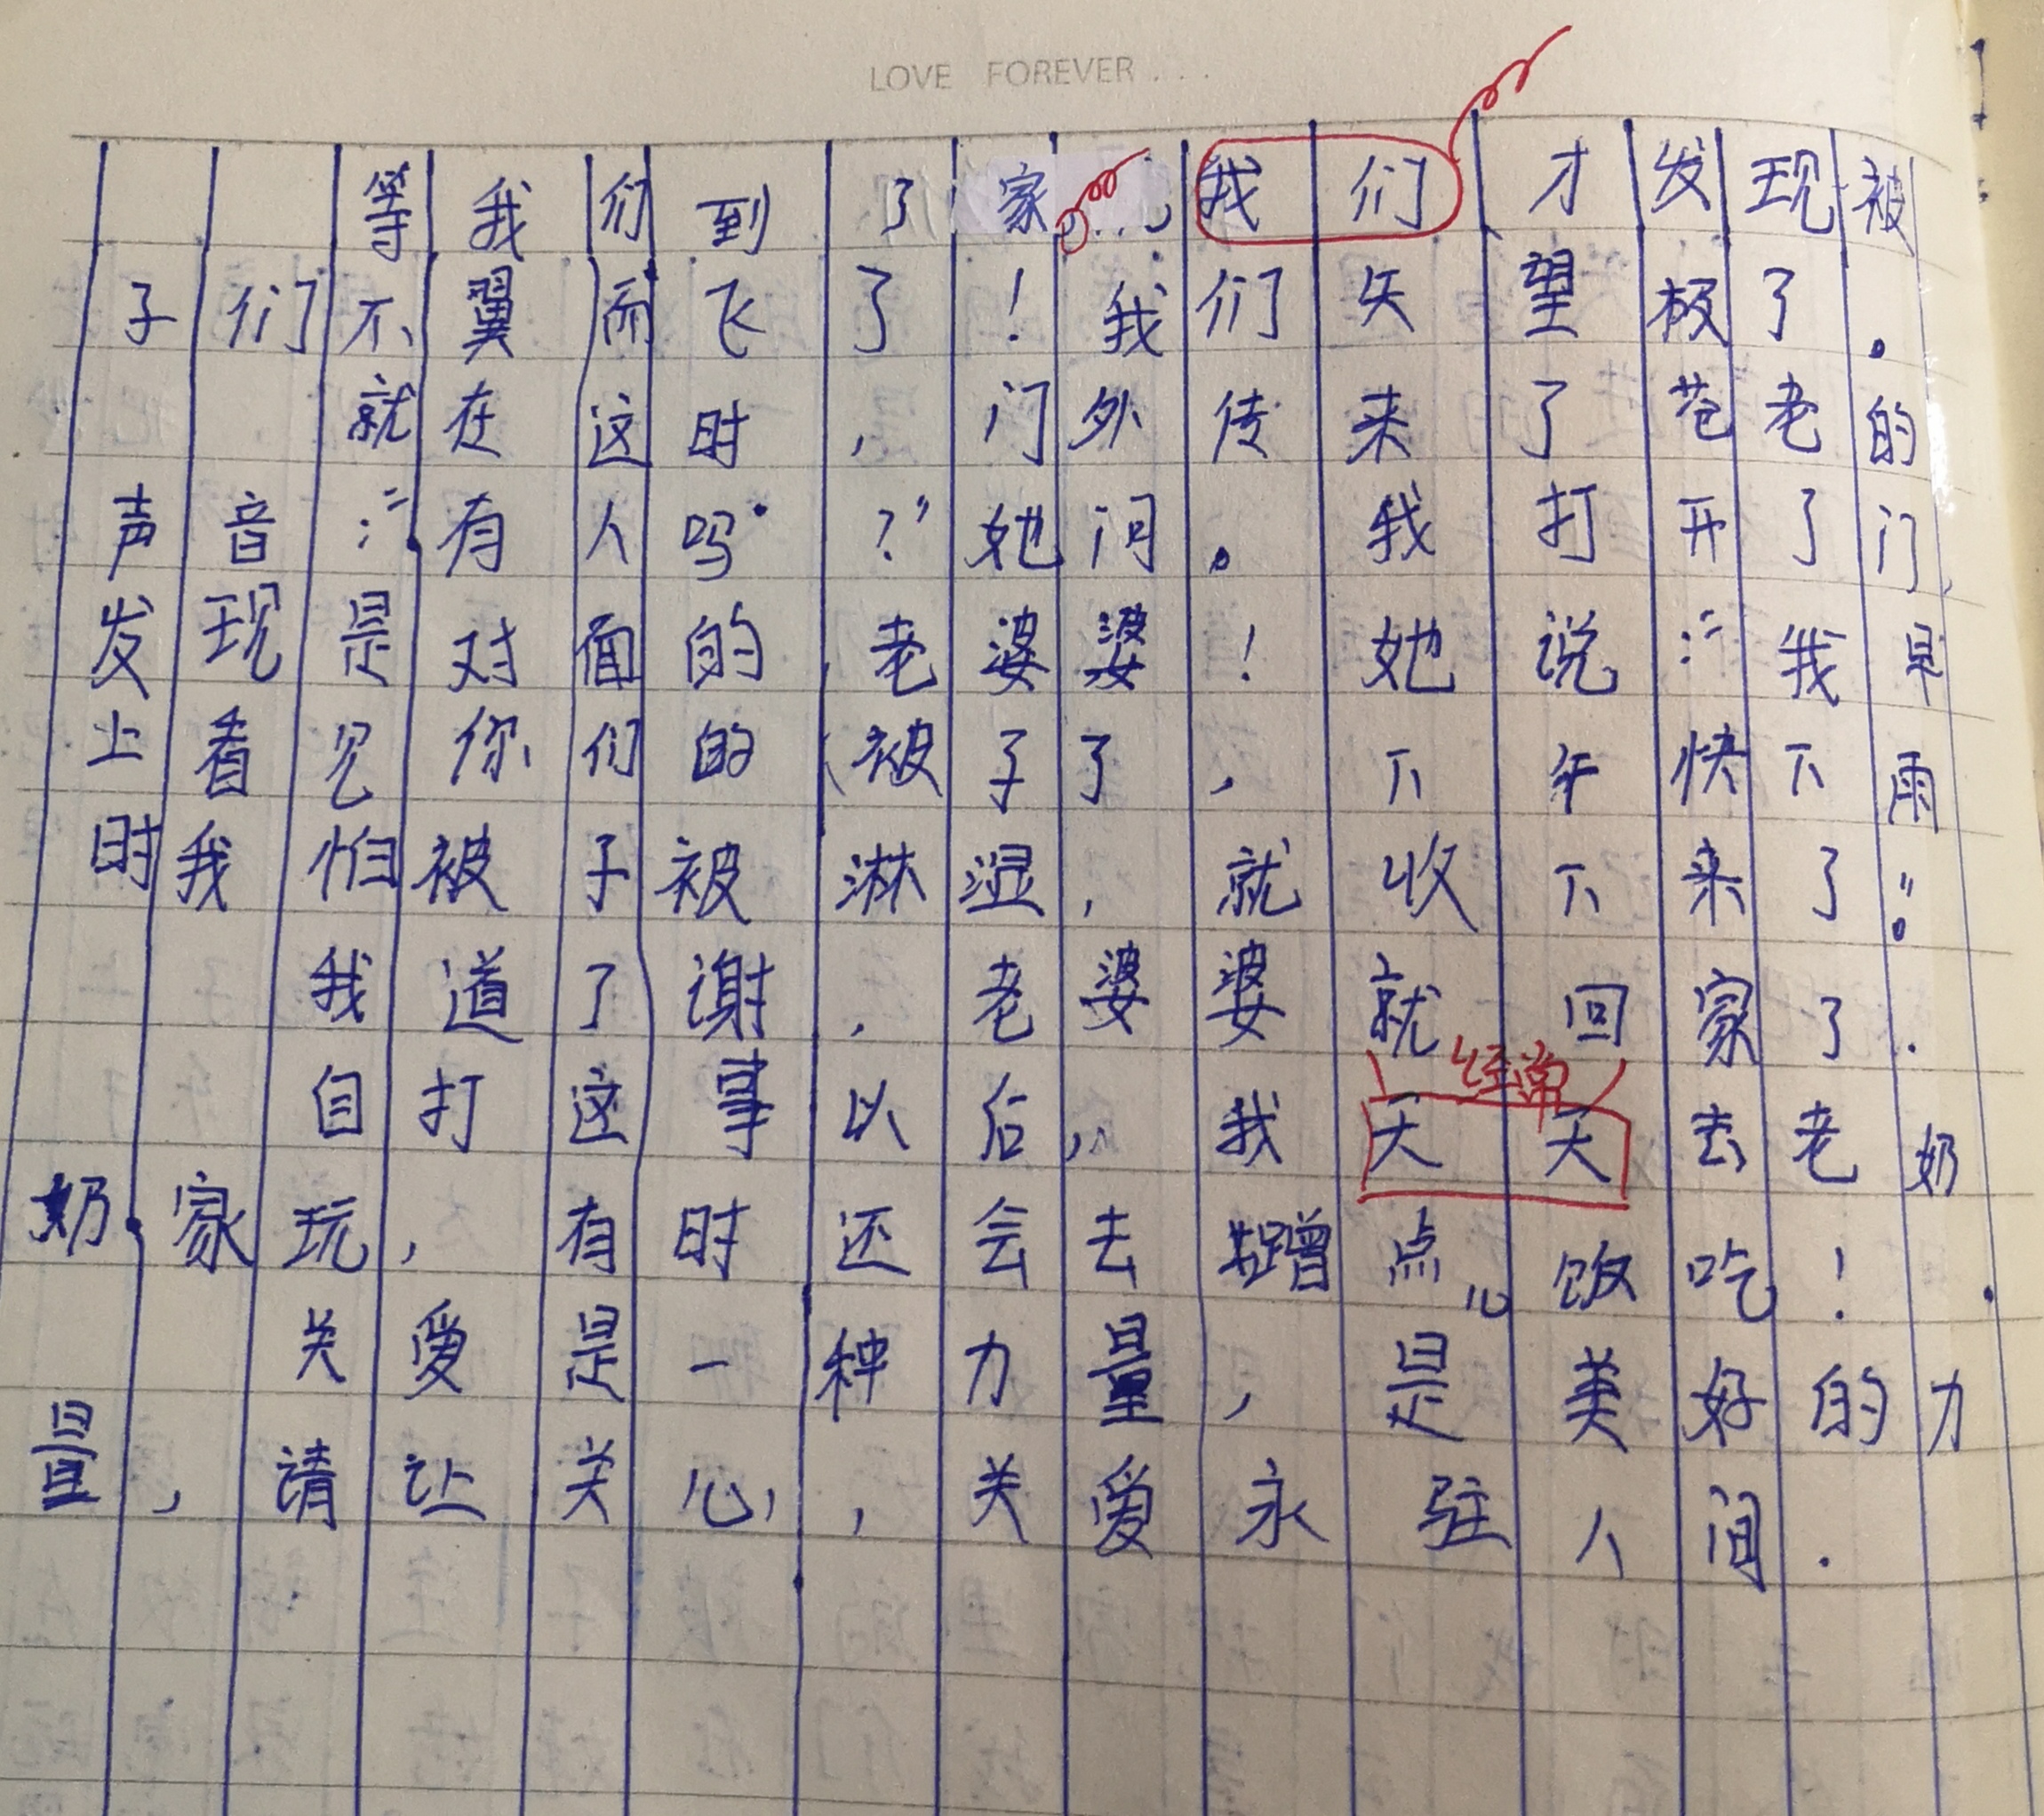 LOVE FOREVER...
等我们到了家，我们才发现被
子们不翼而飞了！我们失望极了。
就在这时，门外传来了苍老的
声音：“有人吗？”她问。我打开了门，
发现是对面的老婆婆！她说：“我早
上看见你们的被子了，下午快下雨
时我怕被子被淋湿，就收下来了”。
我道了谢，老婆婆就回家了.
经常
自打这事以后，我天天去老奶
奶家玩，有时还会去蹭点儿饭吃！
关爱是一种力量，是美好的力
量，请让关心，关爱永驻人间.